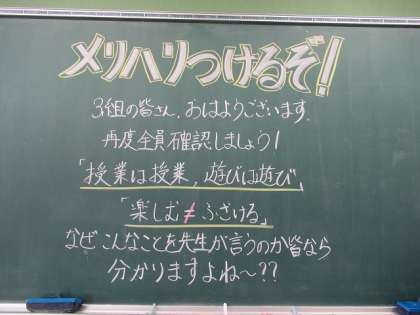 メリハリつけるぞ!
3組の皆さん、おはようございます。
再度全員確認しましょう!
「授業は授業,遊びは遊び」
「楽しむ≠ふざける」
なぜこんなことを先生が言うのか皆なら
分かりますよね〜??